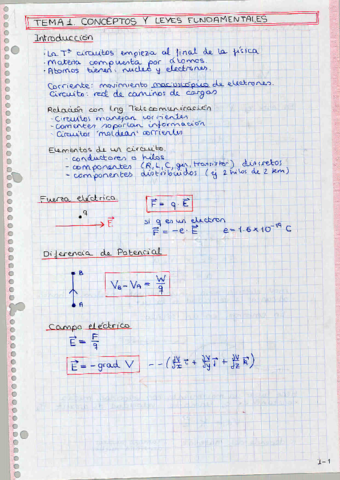 TEMA 1. CONCEPTOS Y LEYES FUNDAMENTALES
Introducción
· La Tª circuitos empieza al final de la física
· Materia compuesta por átomos.
· Atomos tienen: nucleo y electrones.
Corriente: movimiento macroscópico de electrones.
Circuito: red de caminos de cargas
Relación con Ing Telecomunicación
- Circuitos manejan corrientes
- corrientes soportan información
Circuitos "moldean" corrientes
Elementos de un circuito.
- conductores o hilos
- componentes (R, L, C, gen, transistor) discretos
- componentes distribuidos (ej 2 hilos de 2 km)
Fuerza eléctrica
q
E⃗
F⃗ = q · E⃗
si q es un electron
F⃗ = -e · E⃗ e = 1.6 × 10⁻¹⁹ C
Diferencia de Potencial
B
A
V_B - V_A = W/q
Campo eléctrico
E⃗ = F⃗/q
E⃗ = - grad V = -(∂V/∂x i⃗ + ∂V/∂y j⃗ + ∂V/∂z k⃗)
1-1